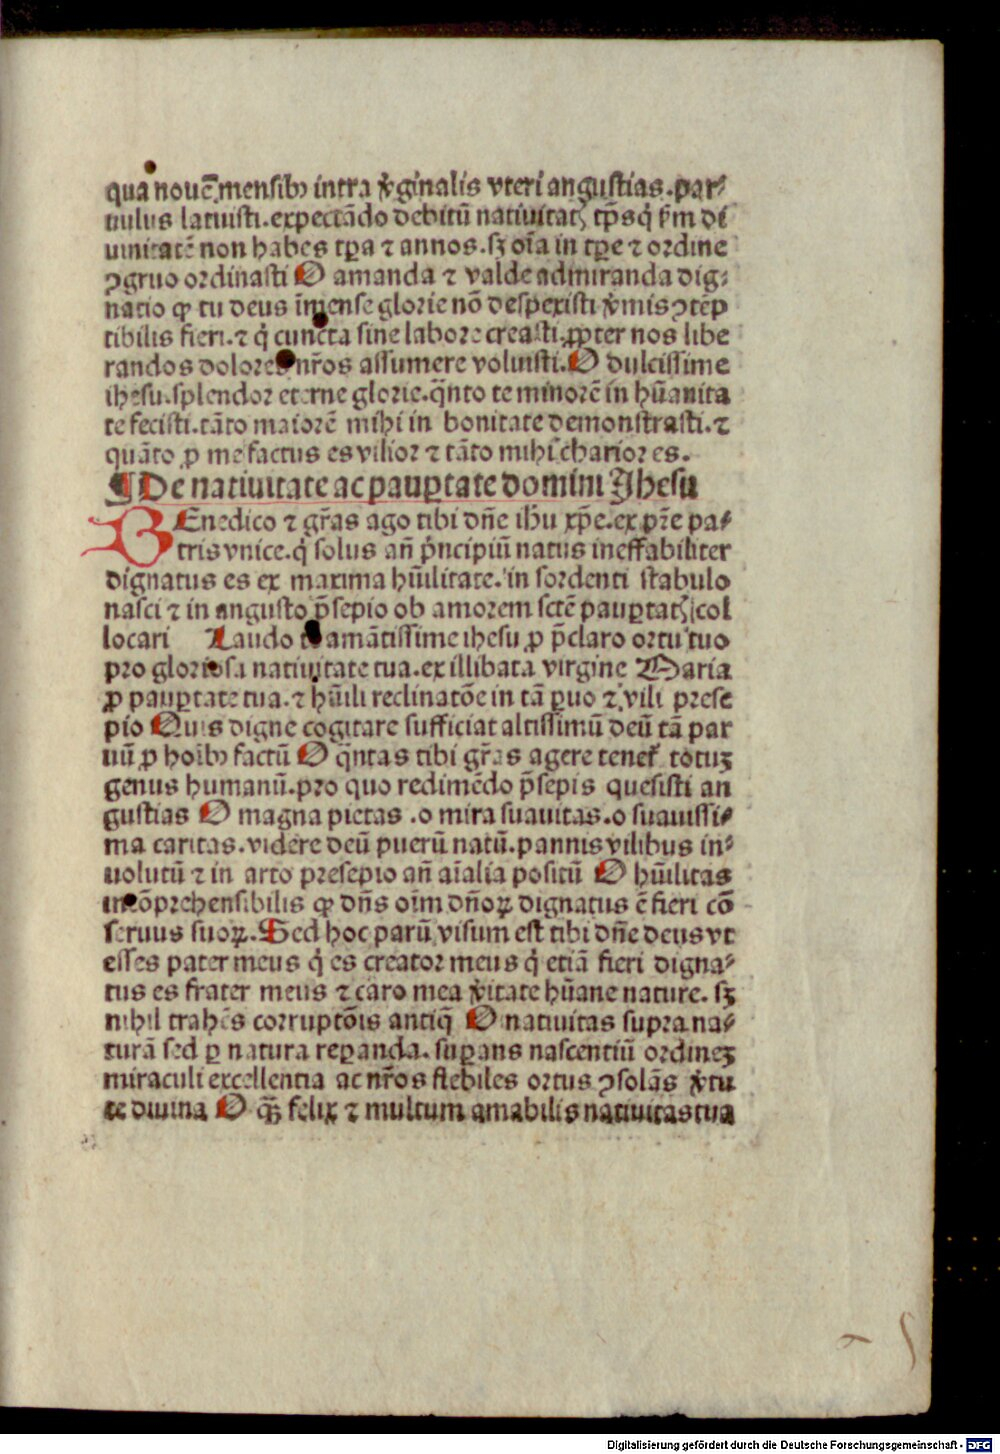 qua nouē mensibꝰ intra v̓ginalis vteri angustias.par⸗
uulus latuisti.expectādo debitū natiuitatꝭ tp̄s q̇ ẜm di
uinitatē non habes tp̄a ⁊ annos.sꝫ oīa in tp̄e ⁊ ordine
ꝯgruo ordinasti O amanda ⁊ valde admiranda dig⸗
natio ꝙ tu deus īmense glorie nō despexisti v̓mis ꝯtēp
tibilis fieri.⁊ q̇ cuncta sine labore creasti.ꝓpter nos libe
randos dolores nr̄os assumere voluisti.O dulcissime
ihesu.splendor eterne glorie.q̄nto te minorē in hūanita
te fecisti.tāto maiorē mihi in bonitate demonstrasti.⁊
quāto ꝓ me factus es vilior ⁊ tāto mihi charior es.
¶ De natiuitate ac paupꝑtate domini Jhesu
BEnedico ⁊ gr̄as ago tibi dn̄e ihū xp̄e.ex pr̄e pa⸗
tris vnice.q̇ solus an̄ pͥncipiū natus ineffabiliter
dignatus es ex maxima hūilitate.in sordenti stabulo
nasci ⁊ in angusto p̄sepio ob amorem sctē pauꝑtatꝭ col
locari Laudo te amātissime ihesu ꝓ p̄claro ortu tuo
pro gloriosa natiuitate tua.ex illibata virgine Maria
ꝓ pauꝑtate tua.⁊ hūili reclinatōe in tā ꝑuo ⁊ vili prese
pio Quis digne cogitare sufficiat altissimū deū tā par
uū ꝓ hoībꝰ factū O q̄ntas tibi gr̄as agere teneť totuꝫ
genus humanū.pro quo redimēdo p̄sepis quesisti an
gustias O magna pietas .o mira suauitas.o suauissi⸗
ma caritas.videre deū puerū natū.pannis vilibus in⸗
uolutū ⁊ in arto presepio an̄ aīalia positū O hūilitas
incōprehensibilis ꝙ dn̄s oīm dn̄oꝝ dignatus ē fieri cō
seruus suoꝝ.Sed hoc parū visum est tibi dn̄e deus vt
esses pater meus q̇ es creator meus q̇ etiā fieri digna⸗
tus es frater meus ⁊ caro mea v̓itate hūane nature.sꝫ
nihil trahēs corruptōis antiq̄ O natiuitas supra na⸗
turā sed ꝑ natura reꝑanda.suꝑans nascentiū ordineꝫ
miraculi excellentia ac nr̄os flebiles ortus ꝯsolās v̓tu
te diuina O q̄ꝫ felix ⁊ multum amabilis natiuitas tua
Digitalisierung gefördert durch die Deutsche Forschungsgemeinschaft - DFG